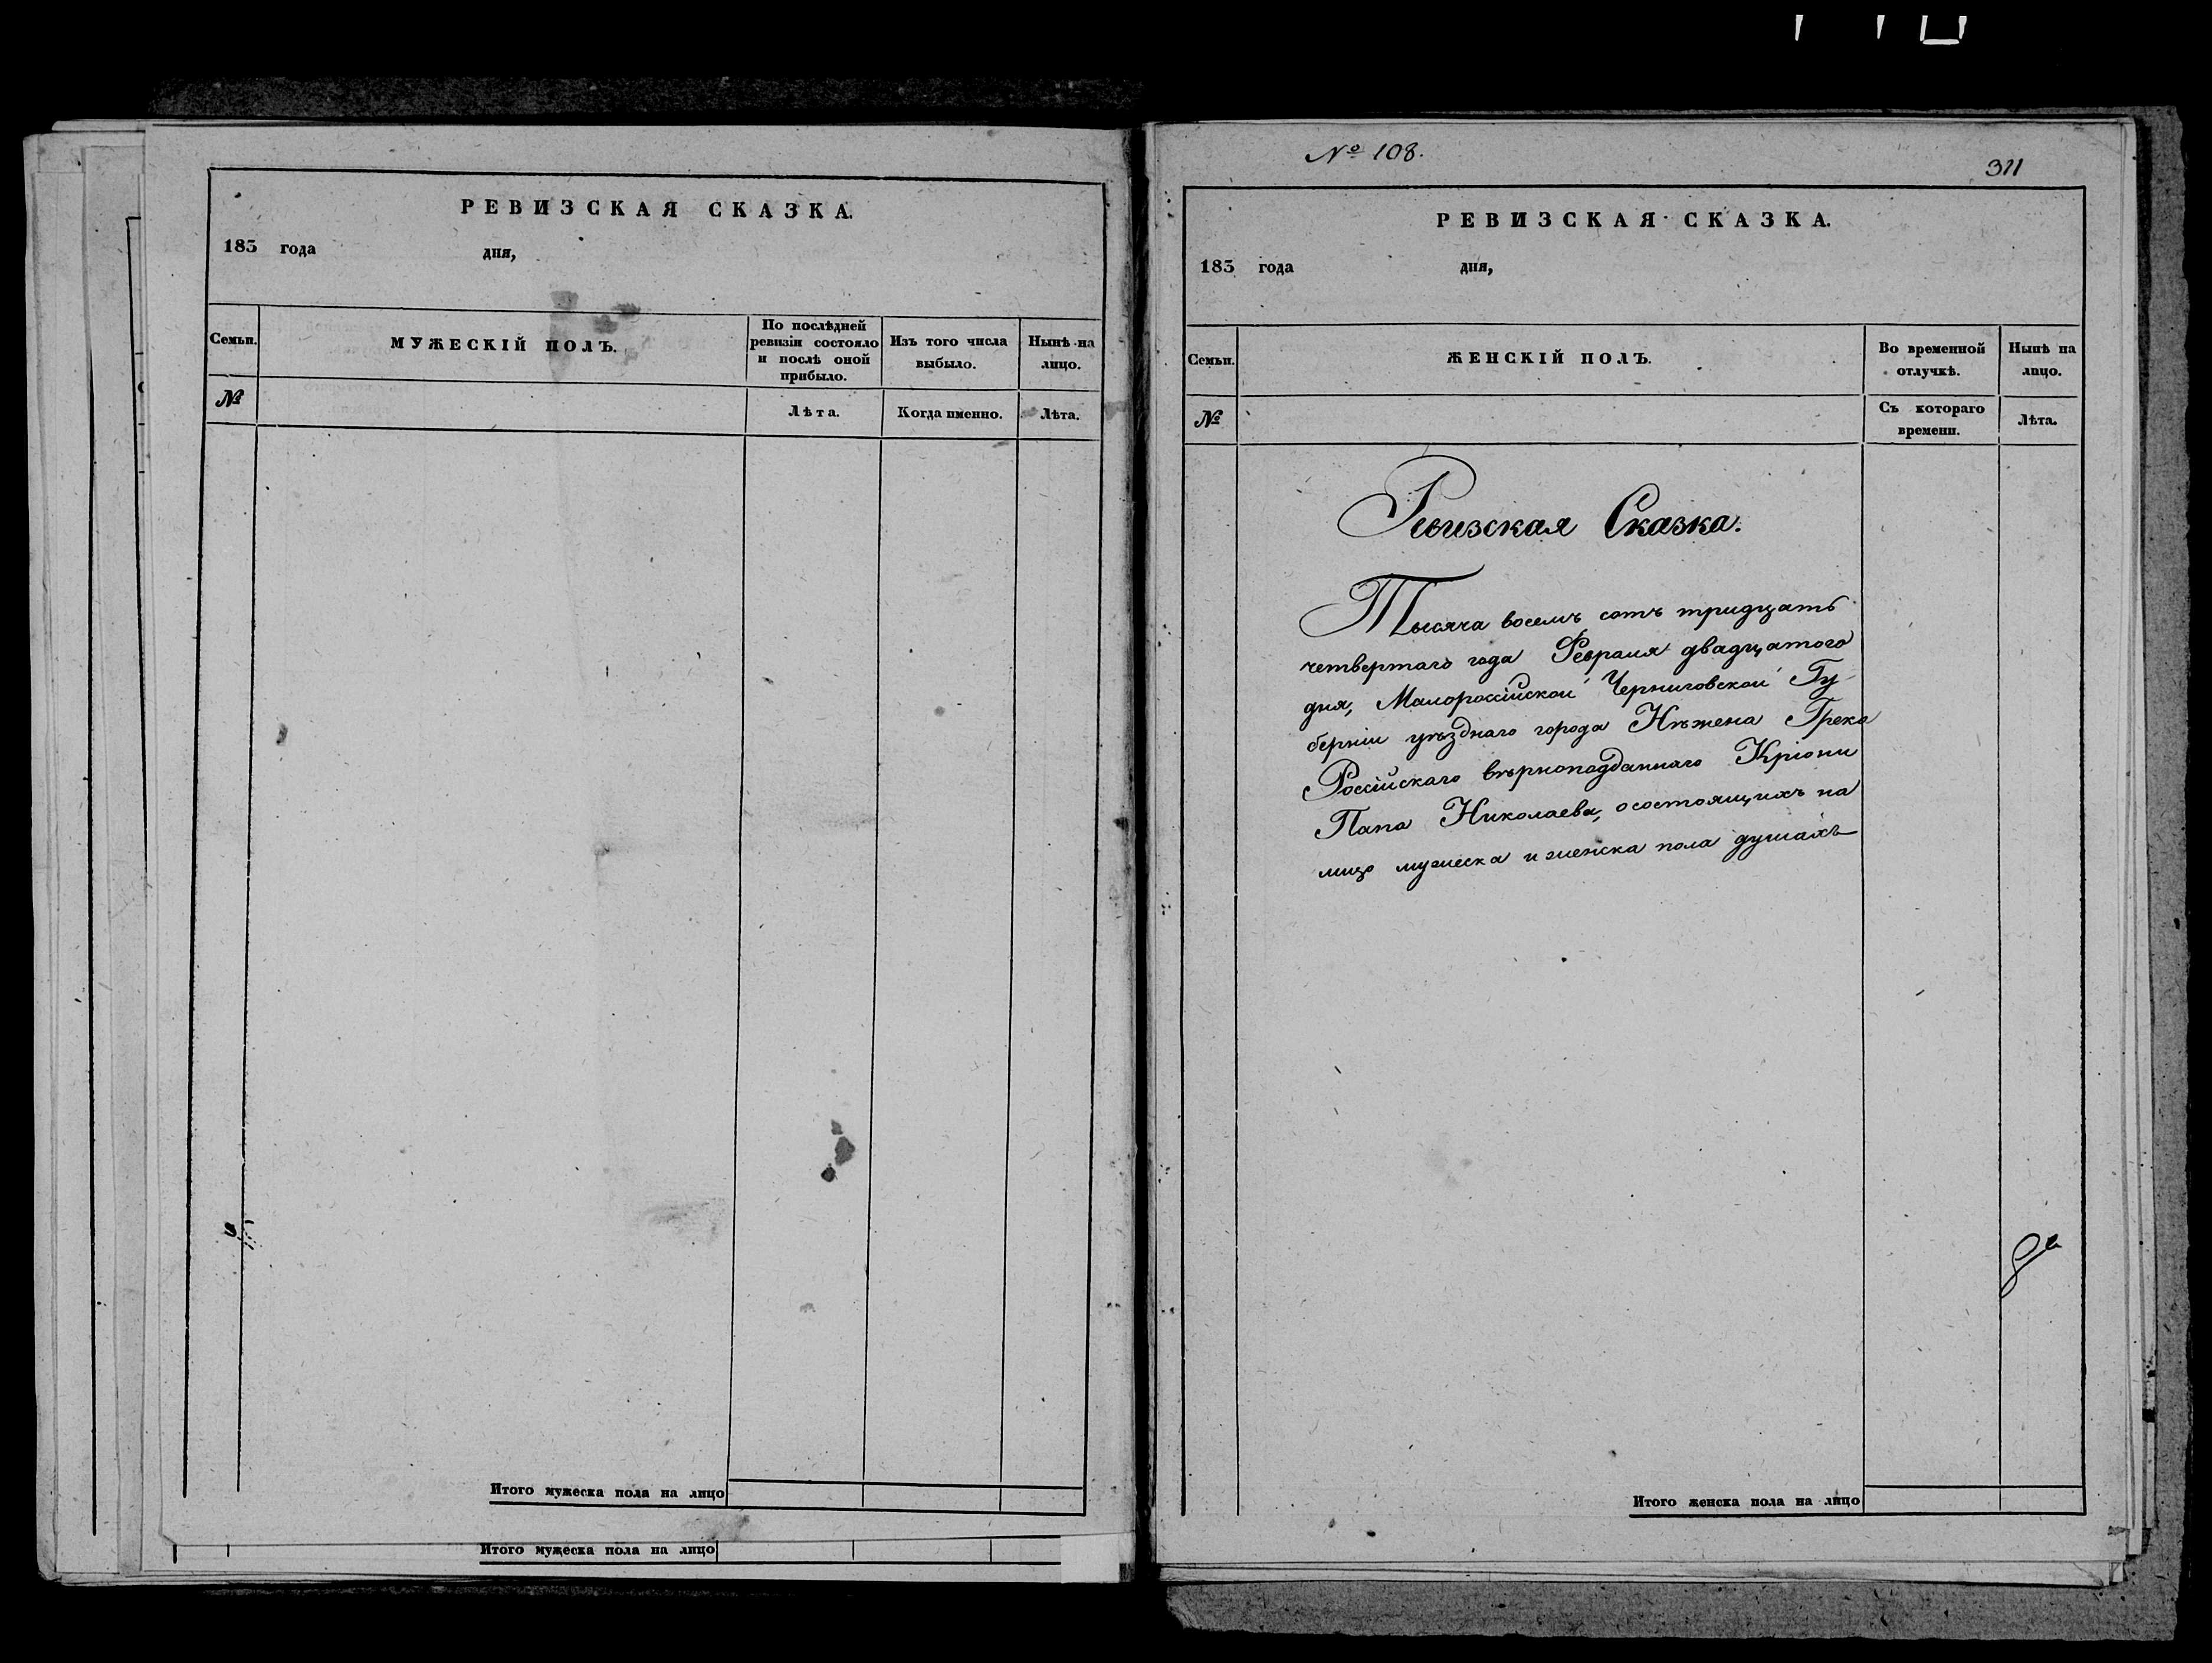 РЕВИЗСКАЯ СКАЗКА.
183 года дня,
Семьи.
МУЖЕСКІЙ ПОЛЪ.
По послѣдней
ревизіи состояло
и послѣ оной
прибыло.
Изъ того числа
выбыло.
Нынѣ на
лицо.
№
Лѣта.
Когда именно.
Лѣта.
Итого мужеска пола на лицо
Итого мужеска пола на лицо
№ 108.
311
РЕВИЗСКАЯ СКАЗКА.
183 года дня,
Семьи.
ЖЕНСКІЙ ПОЛЪ.
Во временной
отлучкѣ.
Нынѣ на
лицо.
№
Съ котораго
времени.
Лѣта.
Ревизская Сказка.
Тысяча восемъ сотъ тридцать
четвертаго года Февраля двадцатого
дня, Малороссійской Черниговской Гу-
берніи уѣзднаго города Нѣжена Грека
Россійскаго вѣрноподданнаго Кріони
Папа Николаева, о состоящихъ на
лицо мужеска и женска пола душахъ
Итого женска пола на лицо